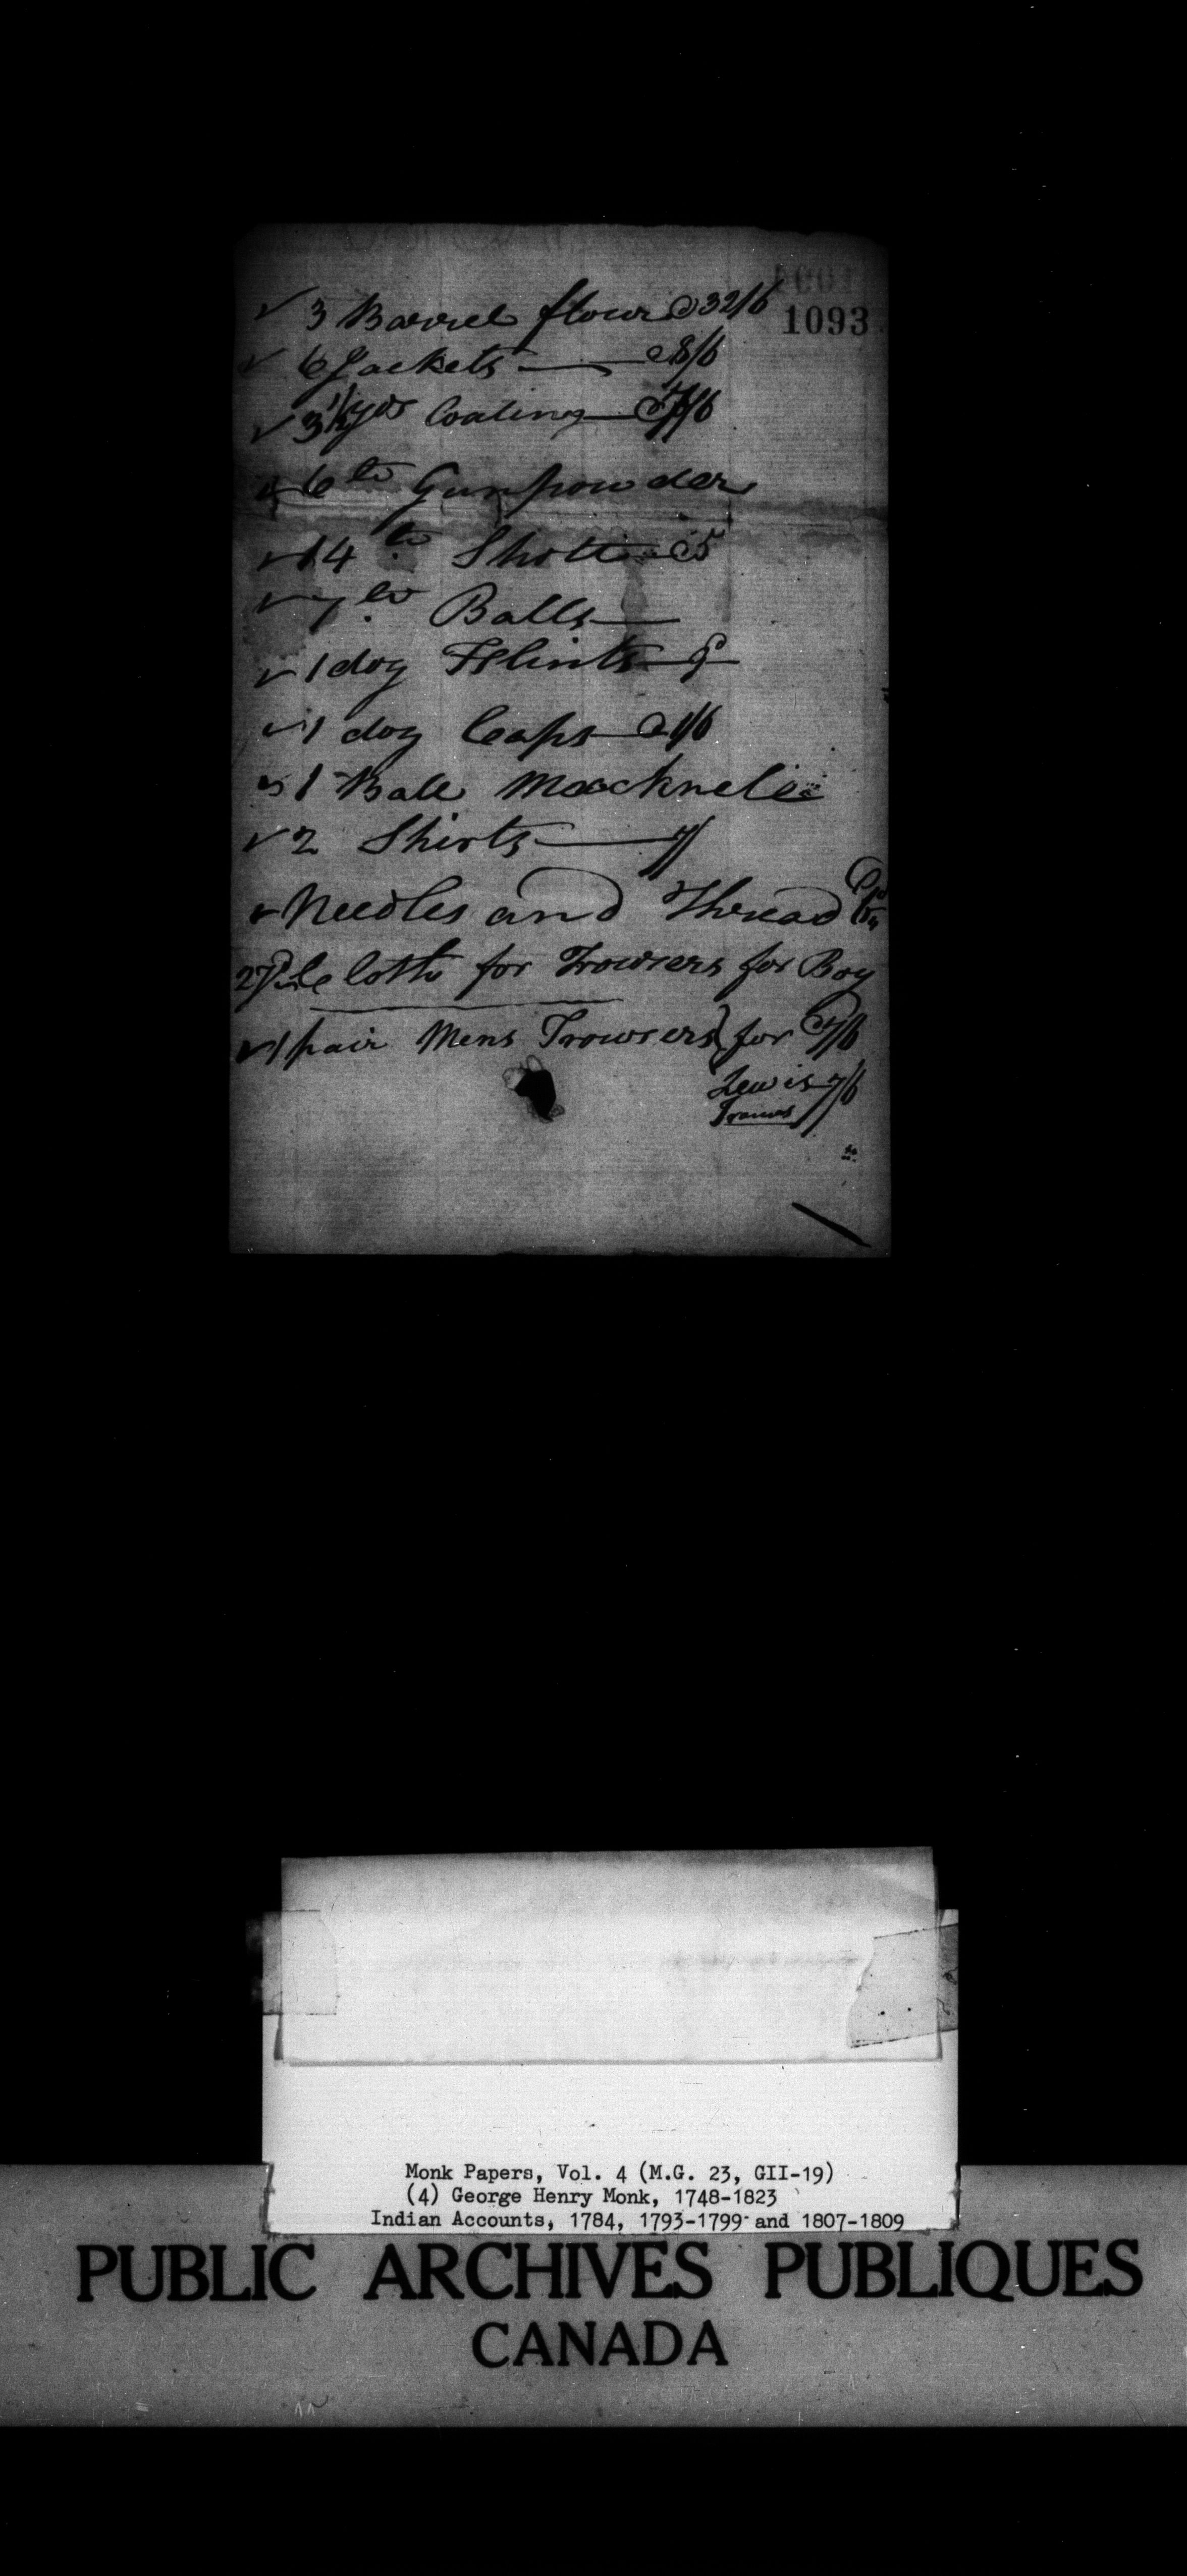 1093
✓ 3 Barrel flour @ 32/6
✓ 6 Jackets — @ 8/6
✓ 3½ yds Coating — @ 7/6
6 lb Gunpowder
✓ 14 lb Shott — @ 5
✓ 7 lb Balls —
✓ 1 doz Flints —
✓ 1 doz Caps — @ 1/6
1 Ball
✓ 2 Shirts — 7/
✓ Needles and Thread
Cloth for Trowsers for Boy
✓ 1 pair Mens Trowsers } for @ 7/6
Lewis 7/6
Monk Papers, Vol. 4 (M.G. 23, GII-19)
(4) George Henry Monk, 1748-1823
Indian Accounts, 1784, 1793-1799 and 1807-1809
PUBLIC ARCHIVES PUBLIQUES
CANADA